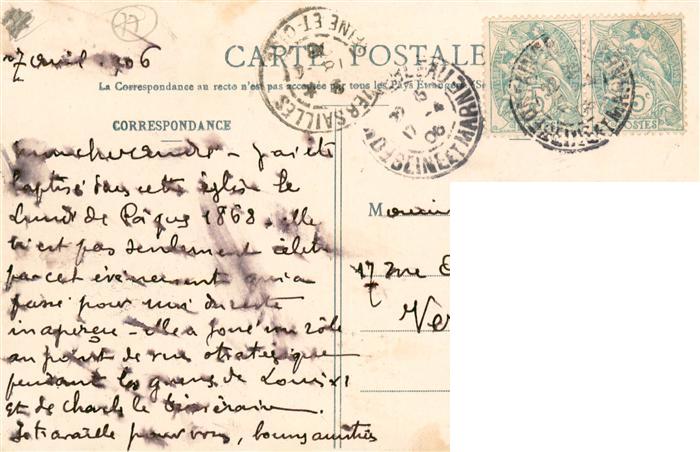 7 avril 1906
CARTE POSTALE
La Correspondance au recto n'est pas acceptée par tous les Pays Étrangers (Se
CORRESPONDANCE
mon cher - j'ai été
baptisé dans cette église le
Lundi de Pâques 1868. Elle
n'est pas seulement célèbre
par cet événement qui a
passé pour moi du reste
inaperçu - elle a joué un rôle
au point de vue stratégique
pendant les guerres de Louis XI
et de Charles le Téméraire.
Je travaille pour vous, bonnes amitiés
Monsieur
17 rue
Ver
VERSAILLES
SEINE-ET-O
SEINE ET MARNE
5c
POSTES
77